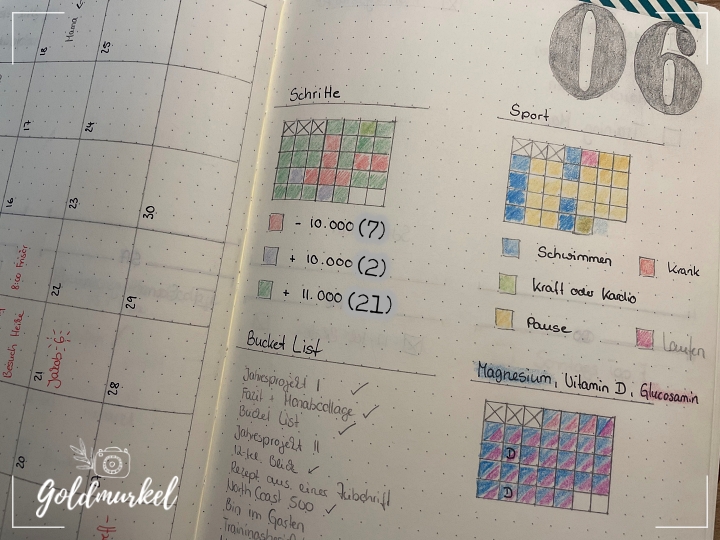 Mama
18
25
17
24
16
23
30
8:00 Frisör
22
29
Besuch Heike
21
Jakob = 6 =
28
20
06
Schritte
- 10.000 (7)
+ 10.000 (2)
+ 11.000 (21)
Sport
Schwimmen
Krank
Kraft oder Kardio
Pause
Laufen
Bucket List
Jahresprojekt I ✓
Fazit + Monatscollage ✓
Bucket List ✓
Jahresprojekt II
12-tel Blick ✓
Rezept aus einer Zeitschrift
North Coast 500 ✓
Bin im Garten
Magnesium, Vitamin D, Glucosamin
D
D
Goldmurkel